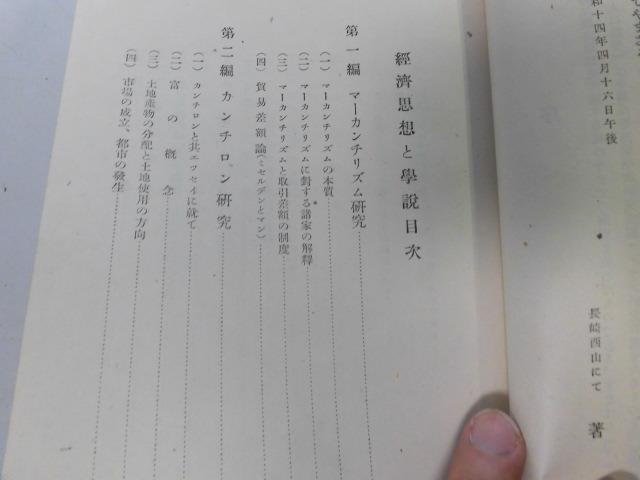 和十四年四月十六日午後
長崎西山にて
著
經濟思想と學說目次
第一編 マーカンチリズム硏究
(一) マーカンチリズムの本質
(二) マーカンチリズムに對する諸家の解釋
(三) マーカンチリズムと取引差額の制度
(四) 貿易差額論(ミセルデンとマン)
第二編 カンチロン硏究
(一) カンチロンと其エッセイに就て
(二) 富の槪念
(三) 土地產物の分配と土地使用の方向
(四) 市場の成立、都市の發生